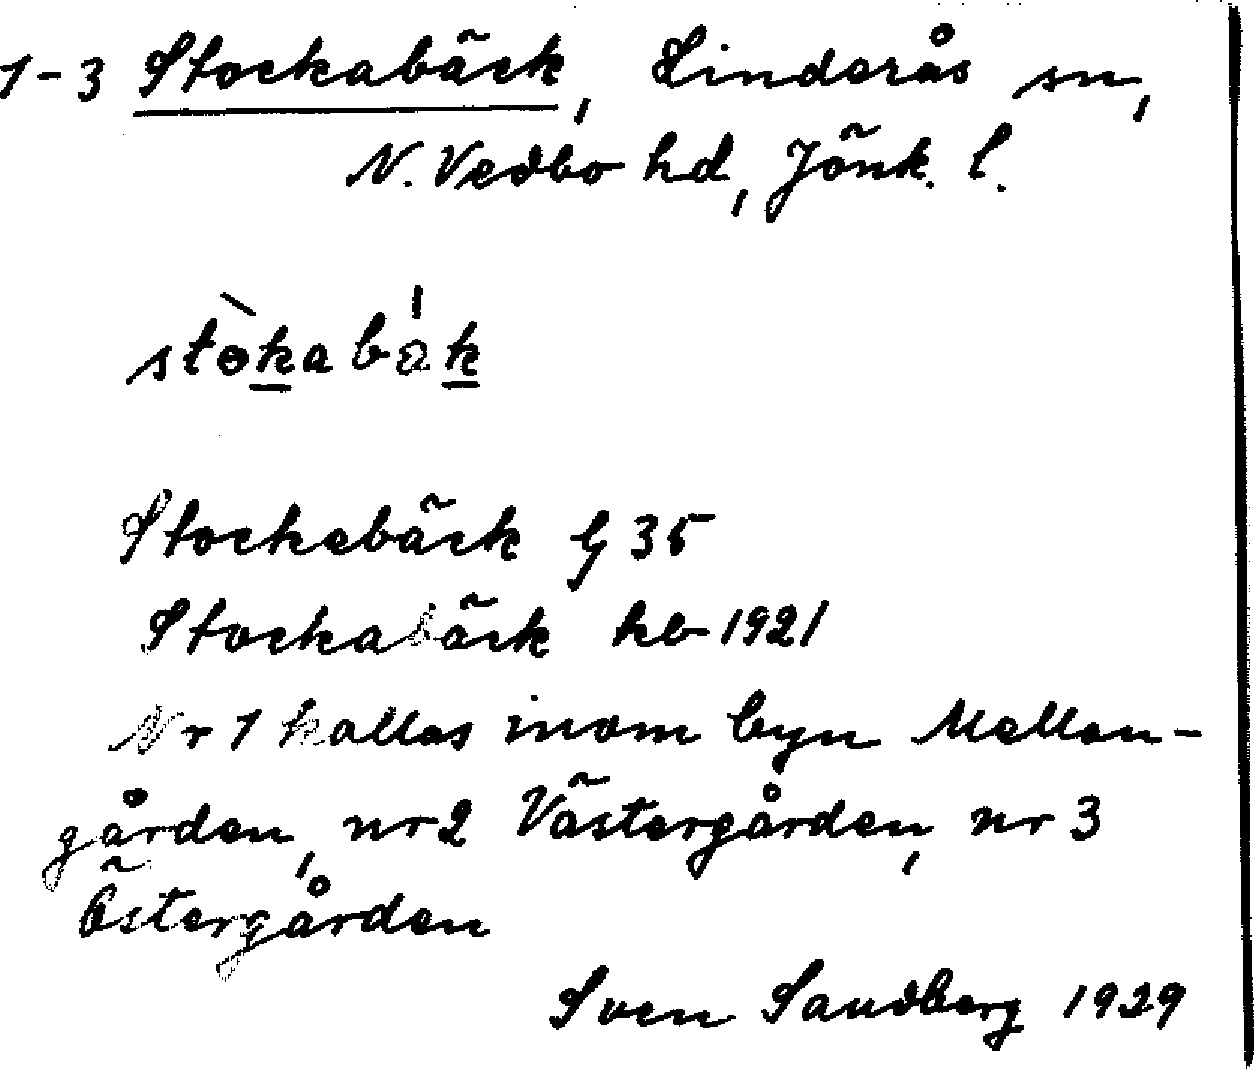 1-3 Stockabäck, Linderås sn,
N. Vedbo hd, Jönk. l.
stòkabák
Stockabäck G 35
Stockabäck kb 1921
Nr 1 kallas inom byn Mellan-
gården, nr 2 Västergården, nr 3
Östergården
Sven Sandberg 1929